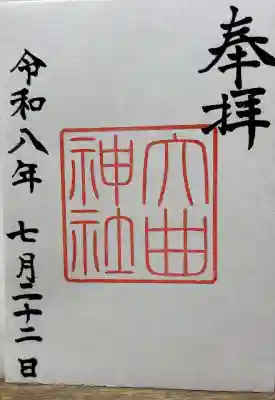 奉拝
大曲
神社
令和八年 七月二十二日